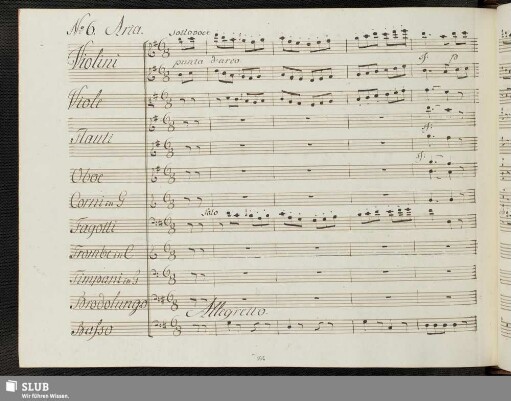 No 6. Aria.
sotto voce
Violini
punta d'arco
Viole
Flauti
Oboe
Corni in G
Fagotti
Solo
Trombe in C
Timpani in G
Brodolungo
Allegretto
Basso
SLUB
Wir führen Wissen.